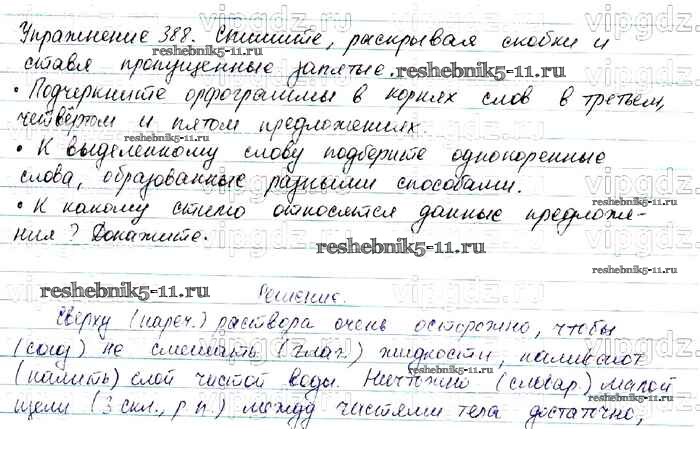 Упражнение 388. Спишите, раскрывая скобки и
ставя пропущенные запятые.
• Подчеркните орфограммы в корнях слов в третьем,
четвёртом и пятом предложениях.
• К выделенному слову подберите однокоренные
слова, образованные разными способами.
• К какому стилю относятся данные предложе-
ния? Докажите.
reshebnik5-11.ru
Решение.
Сверху (нареч.) раствора очень осторожно, чтобы
(союз) не смешать (глаг.) жидкости, наливают
(налить) слой чистой воды. Ничтожно (словар.) малой
щели (3 скл., р.п.) между частями тела достаточно,
vipgdz.ru